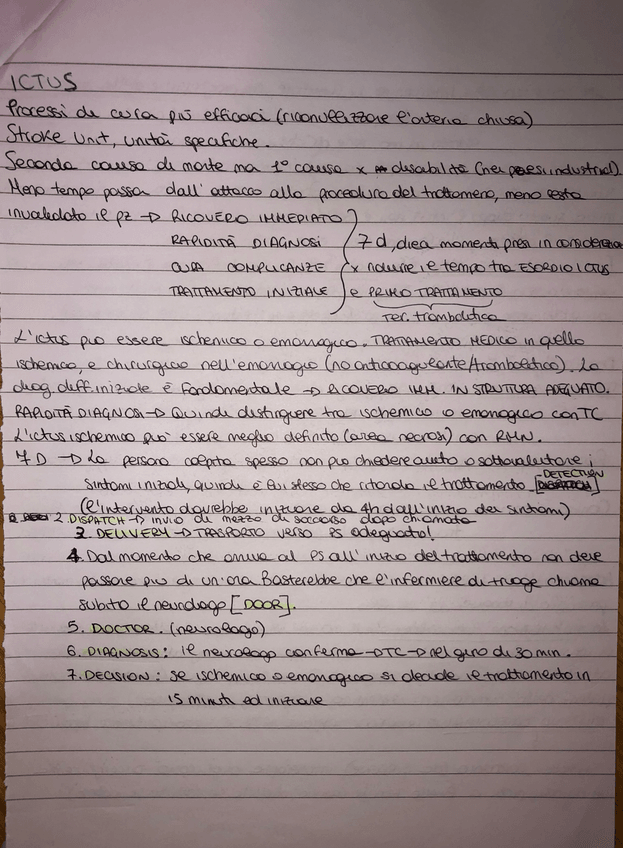 ICTUS
Processi di cura più efficaci (ricanalizzare l'arteria chiusa)
Stroke Unit, unità specifiche.
Seconda causa di morte ma 1° causa x disabilità (nei paesi industrial)
Meno tempo passa dall'attacco alla procedura del trattameno, meno resta
invalidato il pz → RICOVERO IMMEDIATO
RAPIDITÀ DIAGNOSI
CURA COMPLICANZE
TRATTAMENTO INIZIALE
7 d, diea momenti presi in considerazione
x ridurre il tempo tra ESORDIO ICTUS
e PRIMO TRATTAMENTO
ter. trombolitica
L'ictus può essere ischemico o emorragico. TRATTAMENTO MEDICO in quello
ischemico, e chirurgico nell'emorragico (no anticoagulante/trombolitico). La
diag. diff. iniziale è fondamentale → RICOVERO IMM. IN STRUTTURA ADEGUATO.
RAPIDITÀ DIAGNOSI → Quindi distinguere tra ischemico o emorragico con TC
L'ictus ischemico può essere meglio definito (area necrosi) con RMN.
7 D → La persona colpita spesso non può chiedere aiuto o sottovalutare i
sintomi iniziali, quindi è lui stesso che ritarda il trattamento [DETECTION]
(l'intervento dovrebbe iniziare da 4h dall'inizio dei sintomi)
2. DISPATCH → invio di mezzo di soccorso dopo chiamata
3. DELIVERY → TRASPORTO verso PS adeguato!
4. Dal momento che arriva al PS all'inizio del trattamento non deve
passare più di un'ora Basterebbe che l'infermiere di triage chiama
subito il neurologo [DOOR].
5. DOCTOR. (neurologo)
6. DIAGNOSIS: il neurologo conferma → TC → nel giro di 30 min.
7. DECISION: se ischemico o emorragico si decide il trattamento in
15 minuti ed iniziare